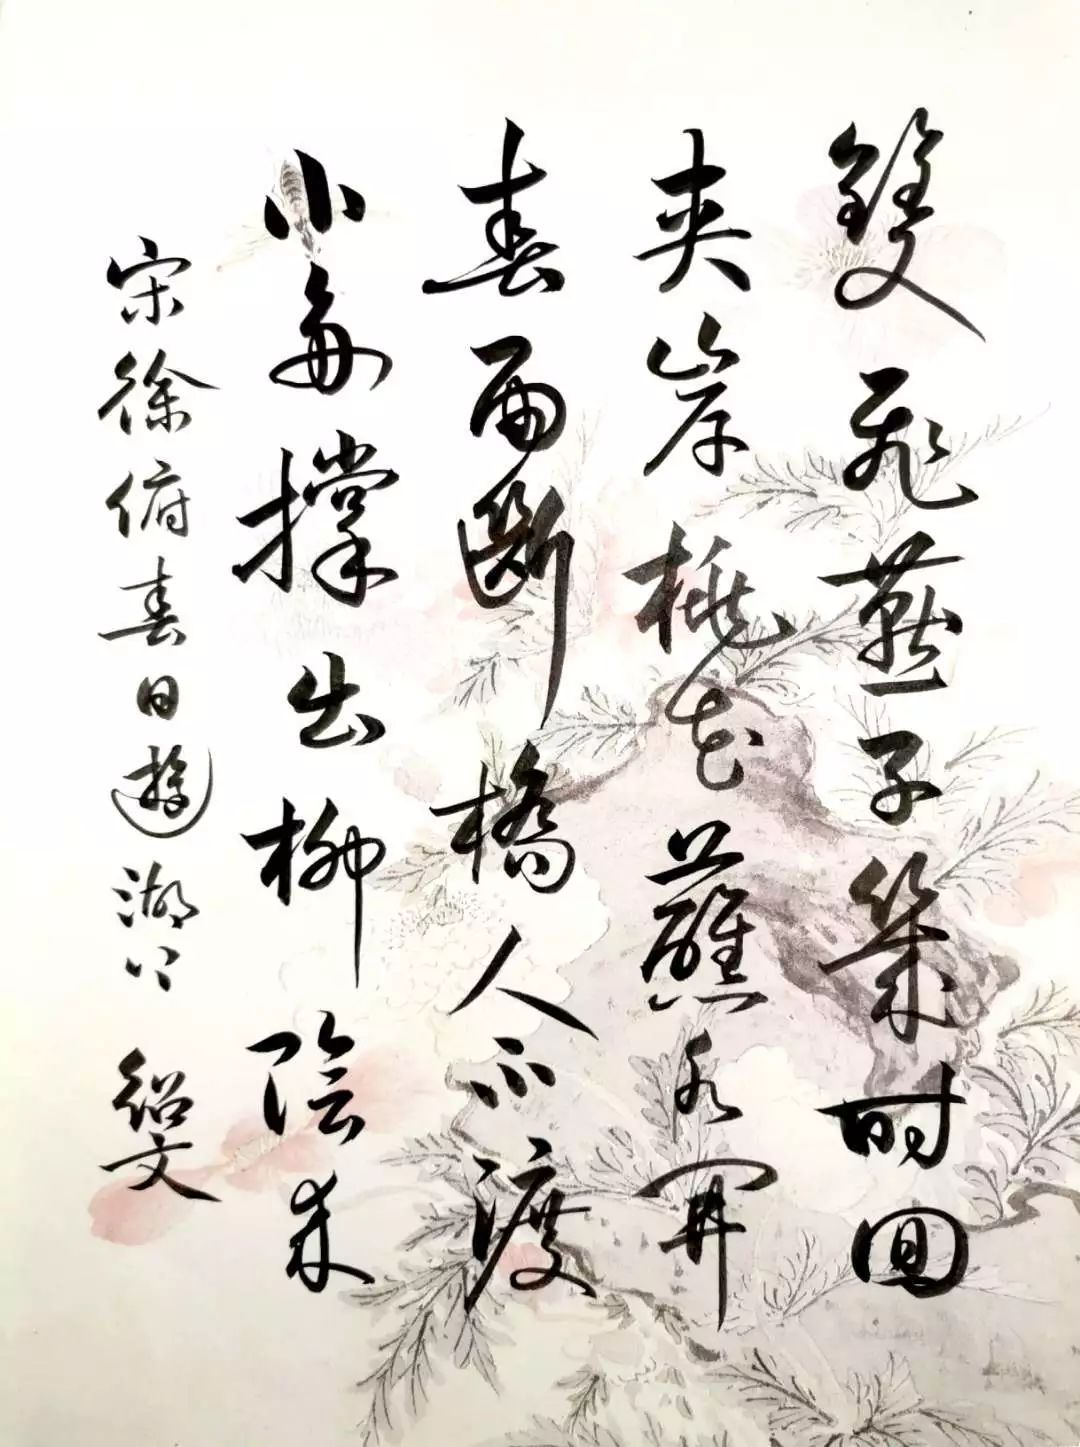 雙飛燕子幾時回
夾岸桃花蘸水開
春雨斷橋人不渡
小舟撐出柳陰來
宋徐俯春日遊湖上 紹文